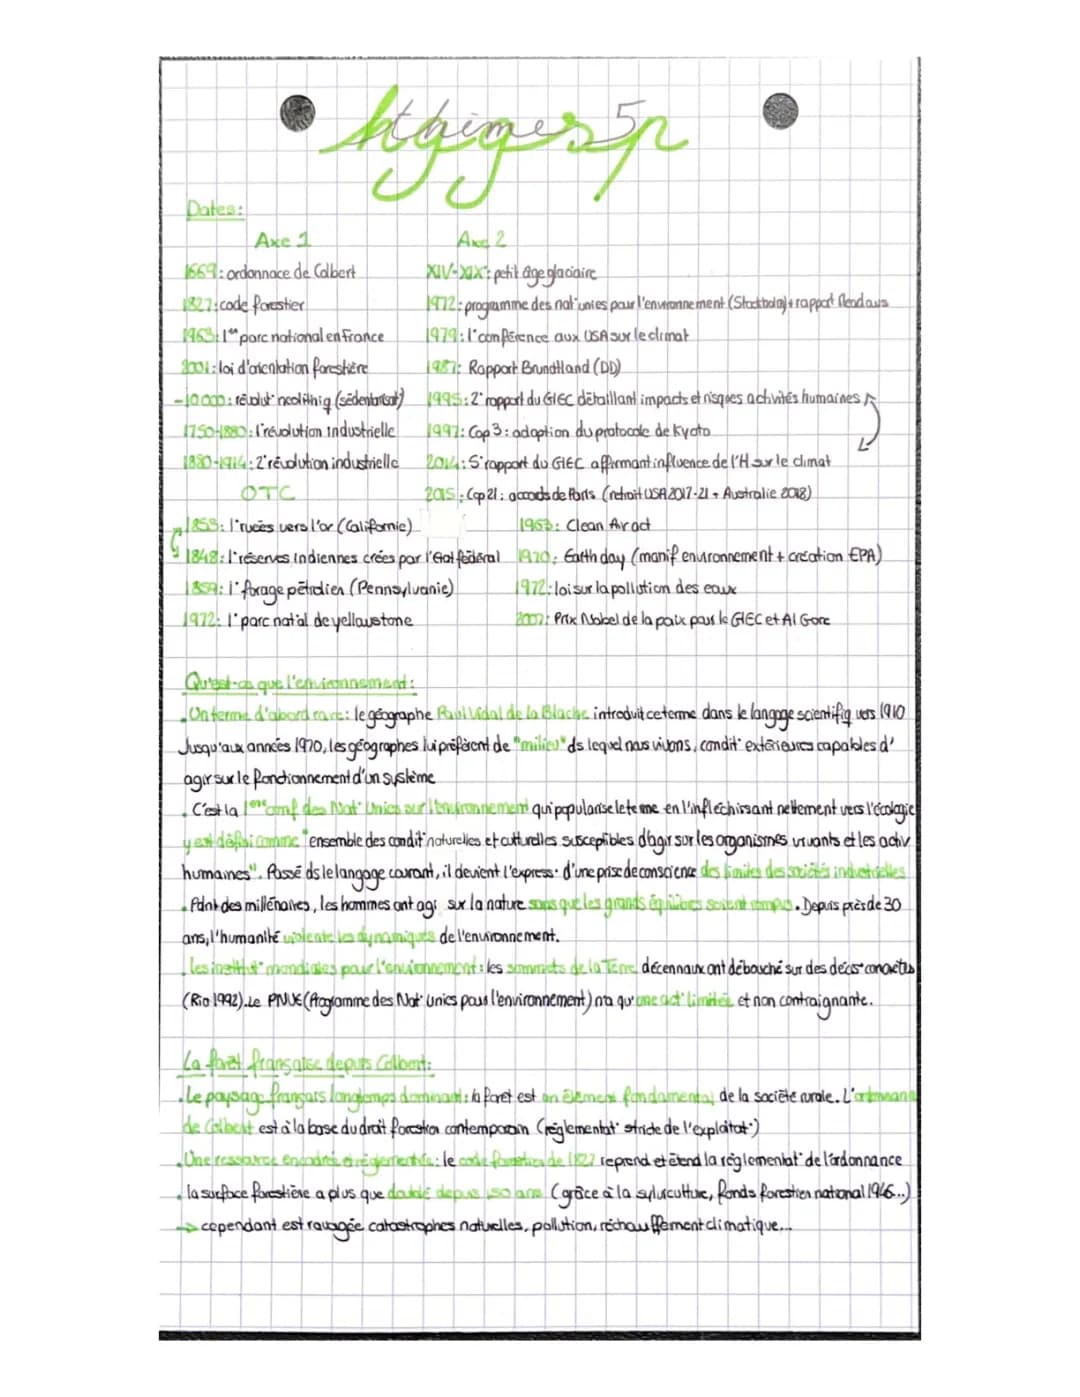 hggsp
thème 5
Dates:
Axe 1
Axe 2
1669: ordonnace de Colbert
XIV-XIXᵉ: petit âge glaciaire
1827: code forestier
1972: programme des nat° unies pour l'environnement (Stockholm) + rapport Meadows
1963: 1ᵉʳ parc national en France
1979: 1ᵉ conférence aux USA sur le climat
2001: loi d'orientation forestière
1987: Rapport Brundtland (DD)
-10 000: révolut° néolithiq (sédentarisat°)
1995: 2ᵉ rapport du GIEC détaillant impacts et risques activités humaines
1750-1880: 1ʳ révolution industrielle
1997: Cop 3: adoption du protocole de Kyoto
1880-1914: 2ᵉ révolution industrielle
2014: 5ᵉ rapport du GIEC affirmant influence de l'H sur le climat
OTC
2015: Cop 21: accords de Paris (retrait USA 2017-21 + Australie 2018)
1853: 1ʳ ruées vers l'or (Californie)
1963: Clean Air act
1848: 1ʳ réserves indiennes crées par l'Etat fédéral
1970: Earth day (manif environnement + création EPA)
1859: 1ᵉ forage pétrolier (Pennsylvanie)
1972: loi sur la pollution des eaux
1972: 1ᵉ parc nat°al de yellowstone
2007: Prix Nobel de la paix pour le GIEC et Al Gore
Qu'est-ce que l'environnement:
. Un terme d'abord rare: le géographe Paul Vidal de la Blache introduit ce terme dans le langage scientifiq vers 1910
Jusqu'aux années 1970, les géographes lui préfèrent de "milieu" ds lequel nous vivons, condit° extérieures capables d'
agir sur le fonctionnement d'un système
. C'est la 1ᵉʳᵉ conf des Nat° Unies sur l'Environnement qui popularise le terme en l'infléchissant nettement vers l'écologie
y est défini comme "ensemble des condit° naturelles et culturelles susceptibles d'agir sur les organismes vivants et les activ
humaines". Passé ds le langage courant, il devient l'express° d'une prise de conscience des limites des sociétés industrielles
. Pdnt des millénaires, les hommes ont agi sur la nature sans que les grands équilibres soient rompus. Depuis près de 30
ans, l'humanité violente les dynamiques de l'environnement.
. les institut° mondiales pour l'environnement: les sommets de la Terre décennaux ont débouché sur des décis° concrètes
(Rio 1992). Le PNUE (Programme des Nat° Unies pour l'environnement) n'a qu'une act° limitée et non contraignante.
La forêt française depuis Colbert:
. Le paysage français longtemps dominant: la foret est un élément fondamental de la société rurale. L'ordonnance
de Colbert est à la base du droit forestier contemporain (réglementat° stricte de l'exploitat°)
. Une ressource encadrée et réglementée: le code forestier de 1827 reprend et étend la réglementat° de l'ordonnance
. la surface forestière a plus que doublé depuis 150 ans (grâce à la sylviculture, fonds forestier national 1946...)
→ cependant est ravagée catastrophes naturelles, pollution, réchauffement climatique...